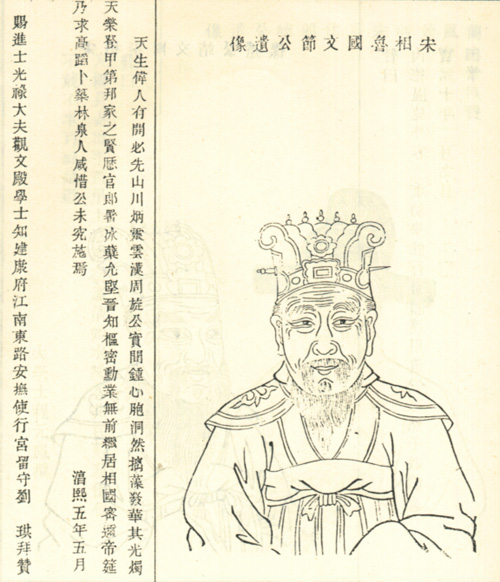 宋相魯國文節公遺像
天生偉人有開必先山川炳靈雲漢周旋公實間鍾心胞洞然摛藻發華其光燭
天榮登甲第邦家之賢歷官郎署冰蘗尤堅晉知樞密勳業無前繼居相國密邇帝筵
乃求高蹈卜築林泉人咸惜公未究施焉 湻熙五年五月
賜進士光祿大夫觀文殿學士知建康府江南東路安撫使行宮留守劉 琪拜贊